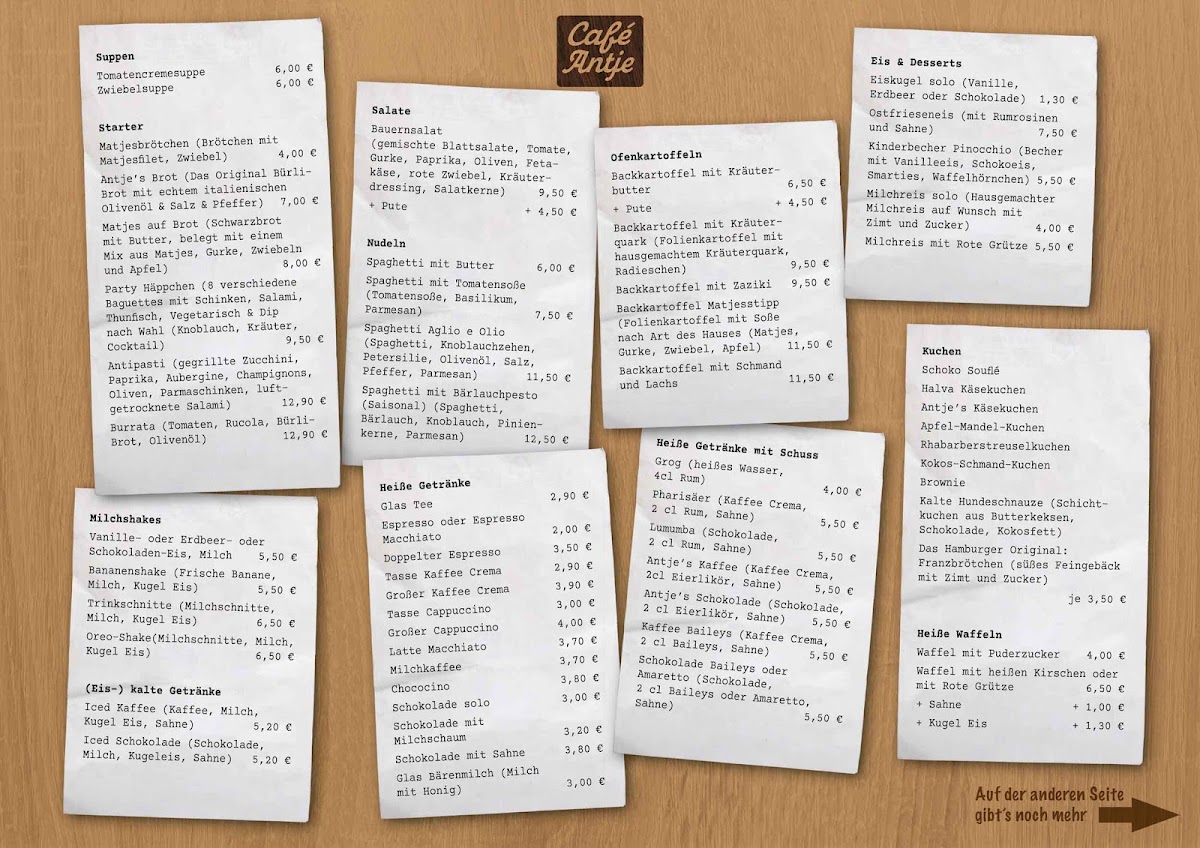 Café
Antje
Suppen
Tomatencremesuppe 6,00 €
Zwiebelsuppe 6,00 €
Starter
Matjesbrötchen (Brötchen mit
Matjesfilet, Zwiebel) 4,00 €
Antje's Brot (Das Original Bürli-
Brot mit echtem italienischen
Olivenöl & Salz & Pfeffer) 7,00 €
Matjes auf Brot (Schwarzbrot
mit Butter, belegt mit einem
Mix aus Matjes, Gurke, Zwiebeln
und Apfel) 8,00 €
Party Häppchen (8 verschiedene
Baguettes mit Schinken, Salami,
Thunfisch, Vegetarisch & Dip
nach Wahl (Knoblauch, Kräuter,
Cocktail) 9,50 €
Antipasti (gegrillte Zucchini,
Paprika, Aubergine, Champignons,
Oliven, Parmaschinken, luft-
getrocknete Salami) 12,90 €
Burrata (Tomaten, Rucola, Bürli-
Brot, Olivenöl) 12,90 €
Salate
Bauernsalat
(gemischte Blattsalate, Tomate,
Gurke, Paprika, Oliven, Feta-
käse, rote Zwiebel, Kräuter-
dressing, Salatkerne) 9,50 €
+ Pute + 4,50 €
Nudeln
Spaghetti mit Butter 6,00 €
Spaghetti mit Tomatensoße
(Tomatensoße, Basilikum,
Parmesan) 7,50 €
Spaghetti Aglio e Olio
(Spaghetti, Knoblauchzehen,
Petersilie, Olivenöl, Salz,
Pfeffer, Parmesan) 11,50 €
Spaghetti mit Bärlauchpesto
(Saisonal) (Spaghetti,
Bärlauch, Knoblauch, Pinien-
kerne, Parmesan) 12,50 €
Ofenkartoffeln
Backkartoffel mit Kräuter-
butter 6,50 €
+ Pute + 4,50 €
Backkartoffel mit Kräuter-
quark (Folienkartoffel mit
hausgemachtem Kräuterquark,
Radieschen) 9,50 €
Backkartoffel mit Zaziki 9,50 €
Backkartoffel Matjesstipp
(Folienkartoffel mit Soße
nach Art des Hauses (Matjes,
Gurke, Zwiebel, Apfel) 11,50 €
Backkartoffel mit Schmand
und Lachs 11,50 €
Eis & Desserts
Eiskugel solo (Vanille,
Erdbeer oder Schokolade) 1,30 €
Ostfrieseneis (mit Rumrosinen
und Sahne) 7,50 €
Kinderbecher Pinocchio (Becher
mit Vanilleeis, Schokoeis,
Smarties, Waffelhörnchen) 5,50 €
Milchreis solo (Hausgemachter
Milchreis auf Wunsch mit
Zimt und Zucker) 4,00 €
Milchreis mit Rote Grütze 5,50 €
Milchshakes
Vanille- oder Erdbeer- oder
Schokoladen-Eis, Milch 5,50 €
Bananenshake (Frische Banane,
Milch, Kugel Eis) 5,50 €
Trinkschnitte (Milchschnitte,
Milch, Kugel Eis) 6,50 €
Oreo-Shake(Milchschnitte, Milch,
Kugel Eis) 6,50 €
(Eis-) kalte Getränke
Iced Kaffee (Kaffee, Milch,
Kugel Eis, Sahne) 5,20 €
Iced Schokolade (Schokolade,
Milch, Kugeleis, Sahne) 5,20 €
Heiße Getränke
Glas Tee 2,90 €
Espresso oder Espresso
Macchiato 2,00 €
Doppelter Espresso 3,50 €
Tasse Kaffee Crema 2,90 €
Großer Kaffee Crema 3,90 €
Tasse Cappuccino 3,00 €
Großer Cappuccino 4,00 €
Latte Macchiato 3,70 €
Milchkaffee 3,70 €
Chococino 3,80 €
Schokolade solo 3,00 €
Schokolade mit
Milchschaum 3,20 €
Schokolade mit Sahne 3,80 €
Glas Bärenmilch (Milch
mit Honig) 3,00 €
Heiße Getränke mit Schuss
Grog (heißes Wasser,
4cl Rum) 4,00 €
Pharisäer (Kaffee Crema,
2 cl Rum, Sahne) 5,50 €
Lumumba (Schokolade,
2 cl Rum, Sahne) 5,50 €
Antje's Kaffee (Kaffee Crema,
2cl Eierlikör, Sahne) 5,50 €
Antje's Schokolade (Schokolade,
2 cl Eierlikör, Sahne) 5,50 €
Kaffee Baileys (Kaffee Crema,
2 cl Baileys, Sahne) 5,50 €
Schokolade Baileys oder
Amaretto (Schokolade,
2 cl Baileys oder Amaretto,
Sahne) 5,50 €
Kuchen
Schoko Souflé
Halva Käsekuchen
Antje's Käsekuchen
Apfel-Mandel-Kuchen
Rhabarberstreuselkuchen
Kokos-Schmand-Kuchen
Brownie
Kalte Hundeschnauze (Schicht-
kuchen aus Butterkeksen,
Schokolade, Kokosfett)
Das Hamburger Original:
Franzbrötchen (süßes Feingebäck
mit Zimt und Zucker)
je 3,50 €
Heiße Waffeln
Waffel mit Puderzucker 4,00 €
Waffel mit heißen Kirschen oder
mit Rote Grütze 6,50 €
+ Sahne + 1,00 €
+ Kugel Eis + 1,30 €
Auf der anderen Seite
gibt's noch mehr